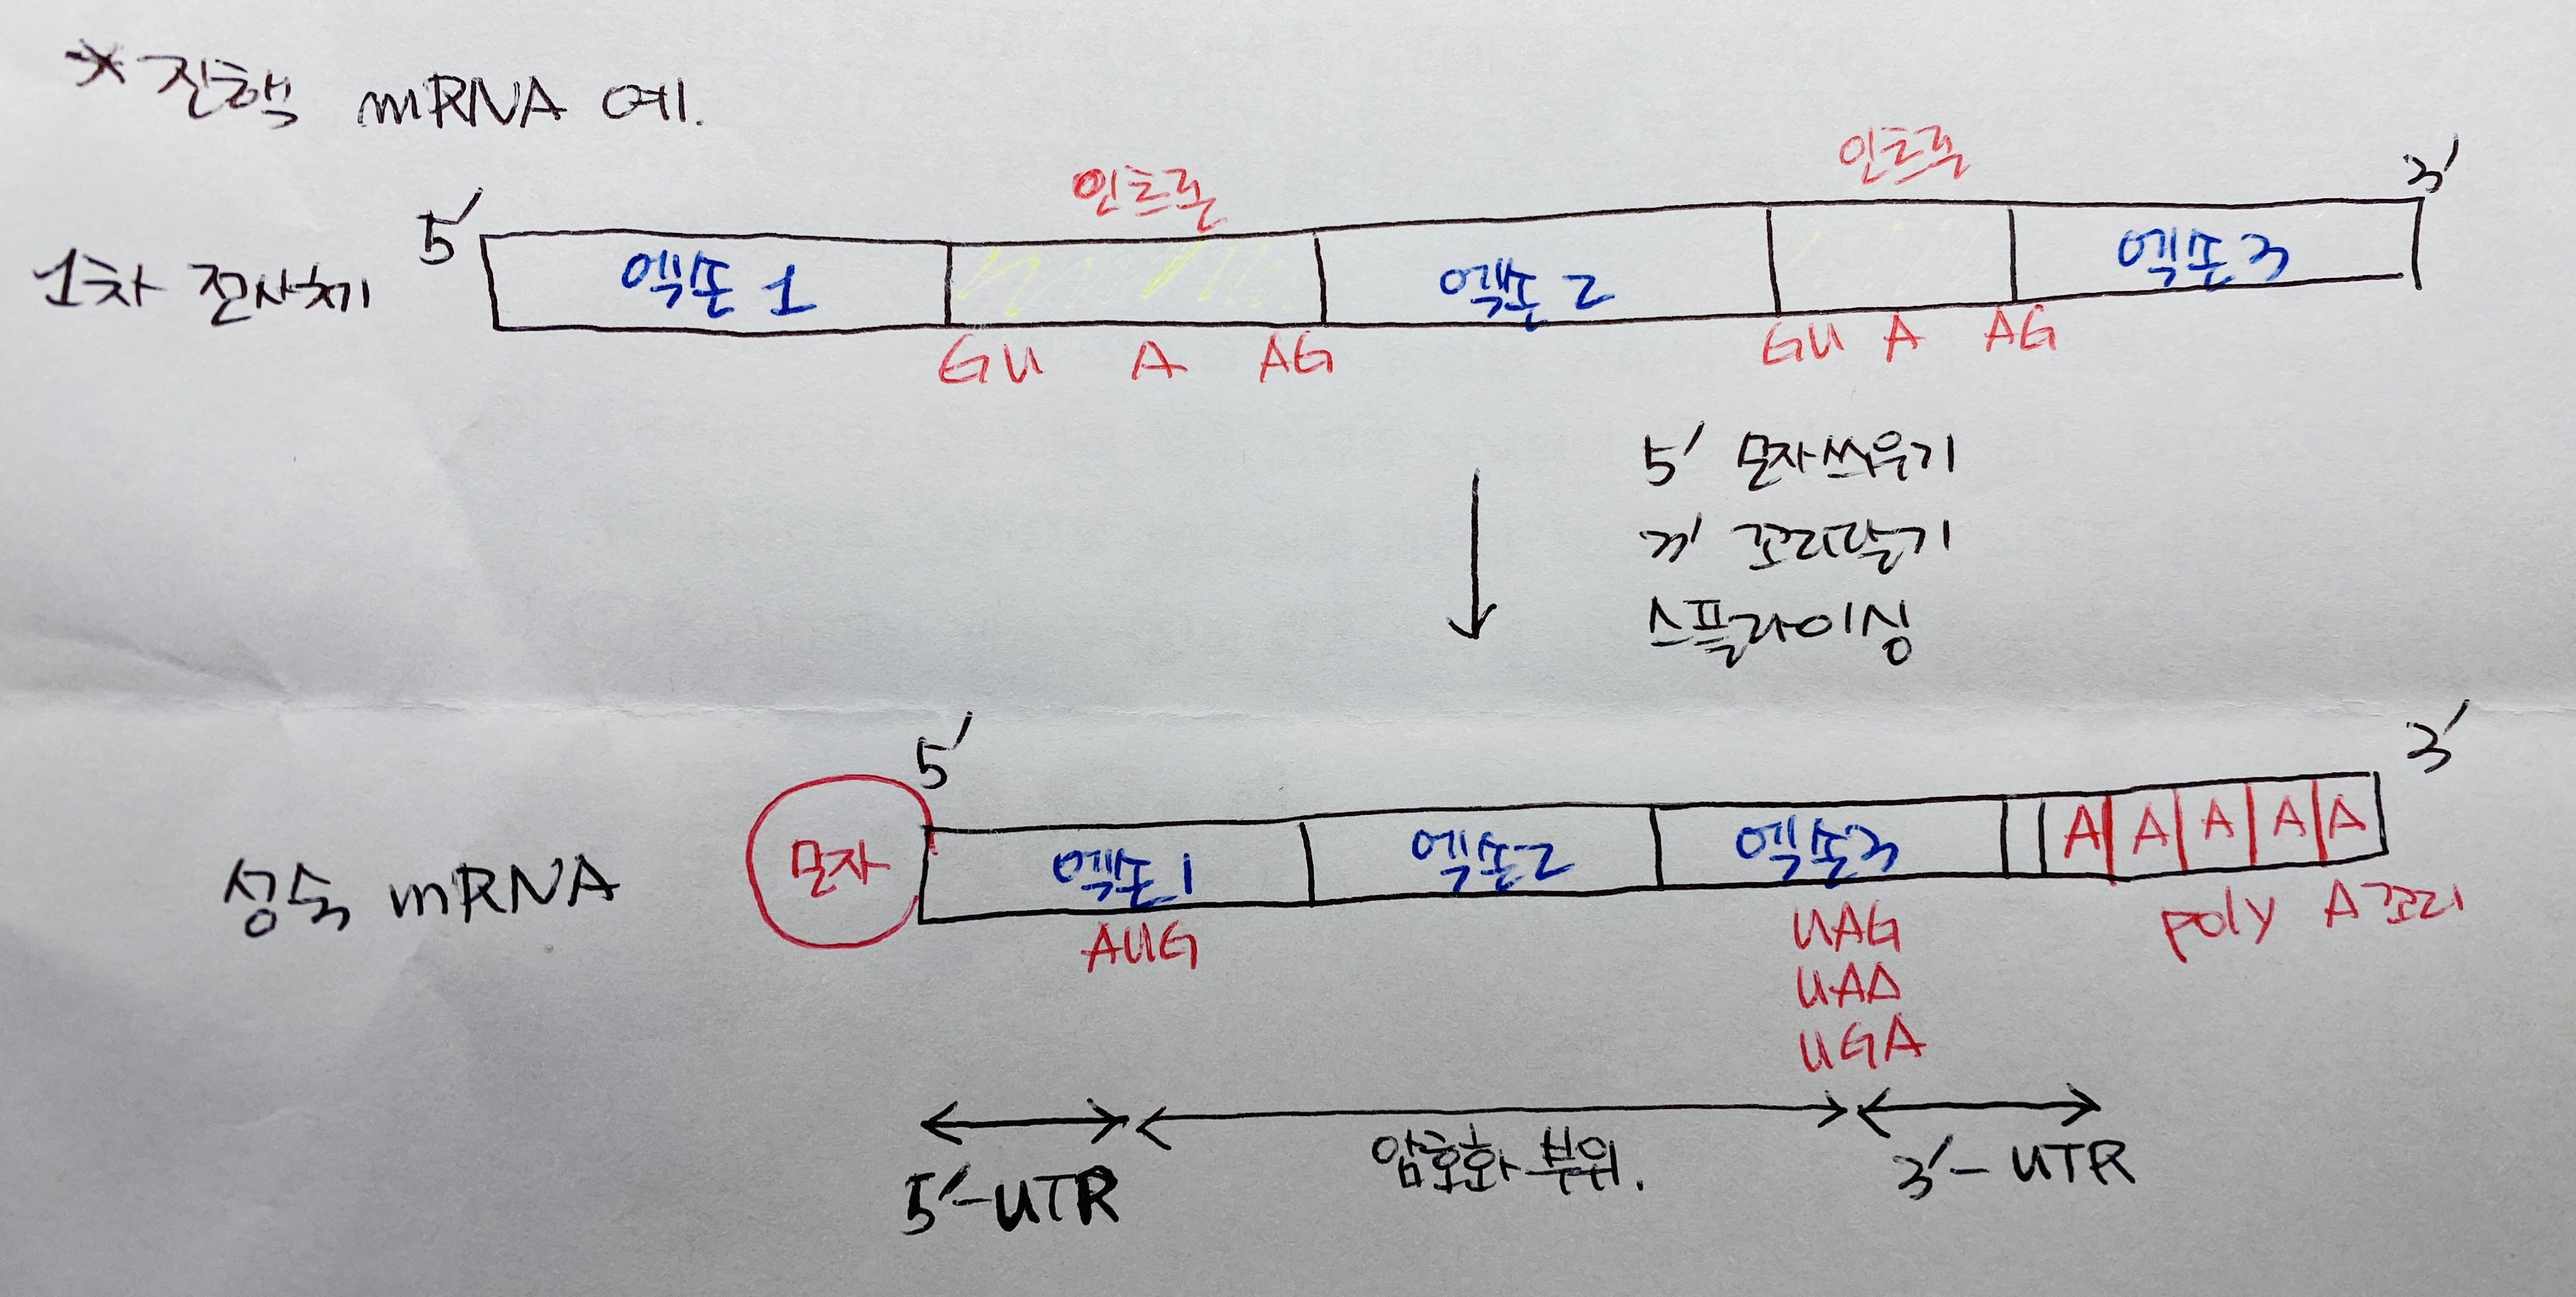 * 진핵 mRNA 예.
인트론 인트론
5' 3'
1차 전사체 엑손 1 엑손 2 엑손 3
GU A AG GU A AG
5' 모자씌우기
3' 꼬리달기
스플라이싱
5' 3'
성숙 mRNA 모자 엑손1 엑손2 엑손3 A A A A A
AUG UAG poly A 꼬리
UAA
UGA
5'-UTR 암호화 부위. 3'-UTR